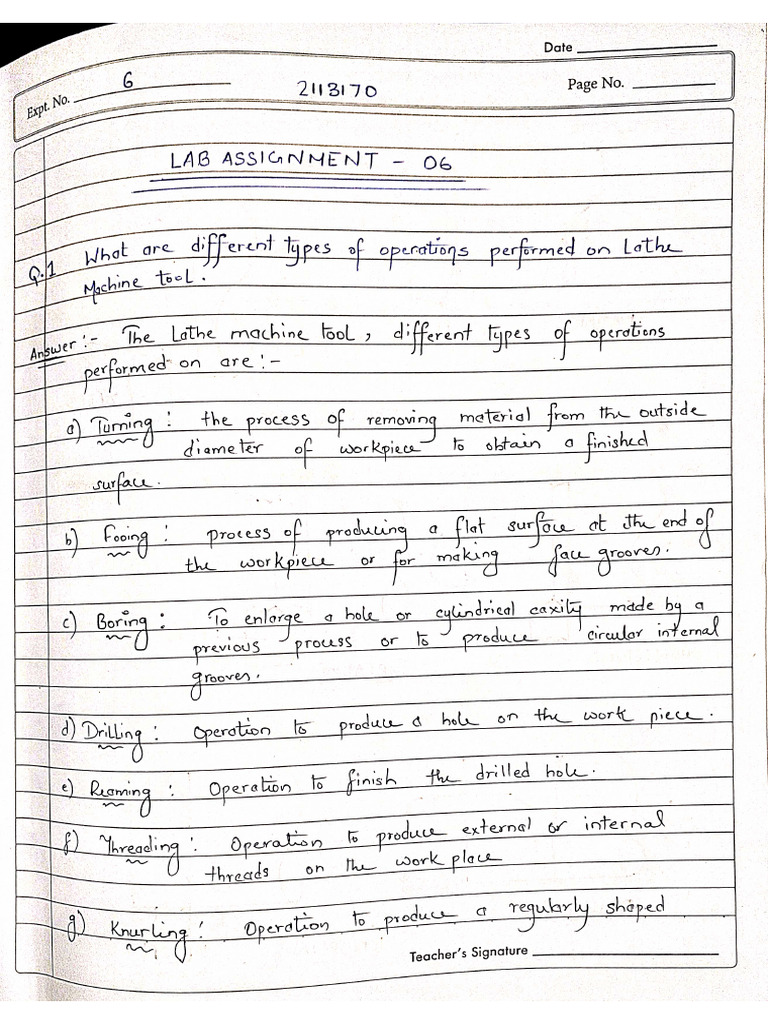 Date
Expt. No. 6
2113170
Page No.
LAB ASSIGNMENT - 06
Q.1 What are different types of operations performed on Lathe
Machine tool.
Answer :- The Lathe machine tool, different types of operations
performed on are :-
a) Turning : the process of removing material from the outside
diameter of workpiece to obtain a finished
surface.
b) Facing : process of producing a flat surface at the end of
the workpiece or for making face grooves.
c) Boring : To enlarge a hole or cylindrical cavity made by a
previous process or to produce circular internal
grooves.
d) Drilling : Operation to produce a hole on the work piece.
e) Reaming : Operation to finish the drilled hole.
f) Threading : Operation to produce external or internal
threads on the work place
g) Knurling : Operation to produce a regularly shaped
Teacher's Signature